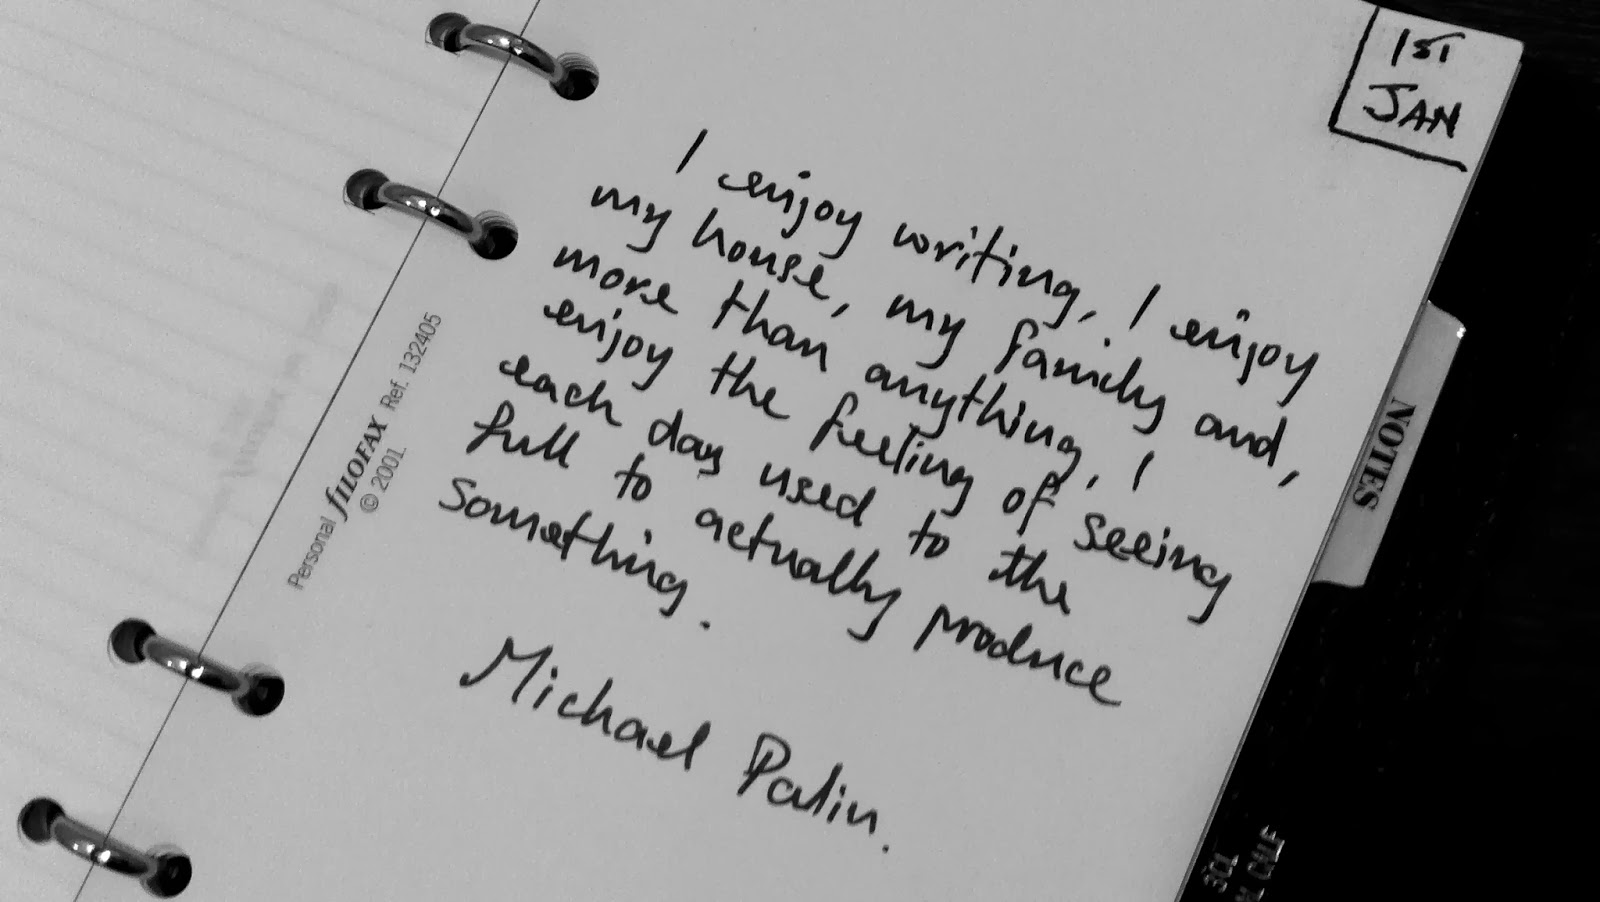 1ST
JAN
I enjoy writing, I enjoy
my house, my family and,
more than anything, I
enjoy the feeling of seeing
each day used to the
full to actually produce
something.
Michael Palin.
Personal FILOFAX Ref. 132405
© 2001
NOTES
CALF